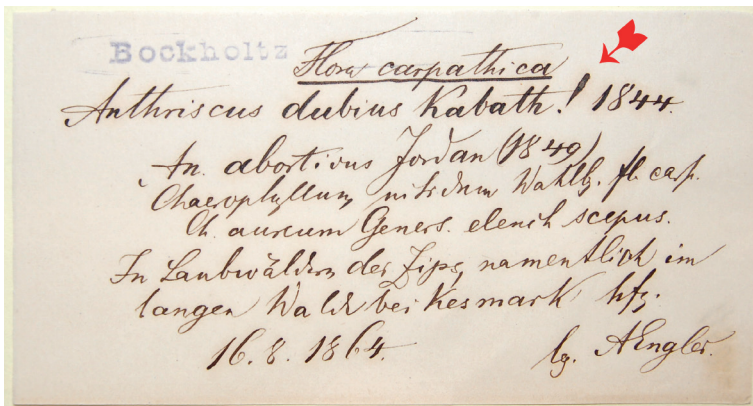 Bockholtz
Flora carpathica
Anthriscus dubius Kabath! 1844.
An. abortivus Jordan (1849)
Chaerophyllum nitidum Wahlbg. fl. carp.
Ch. aureum Geners. elench scepus.
In Laubwäldern der Zips, namentlich im
langen Wald bei Kesmark hfg.
16. 8. 1864. lg. AEngler.